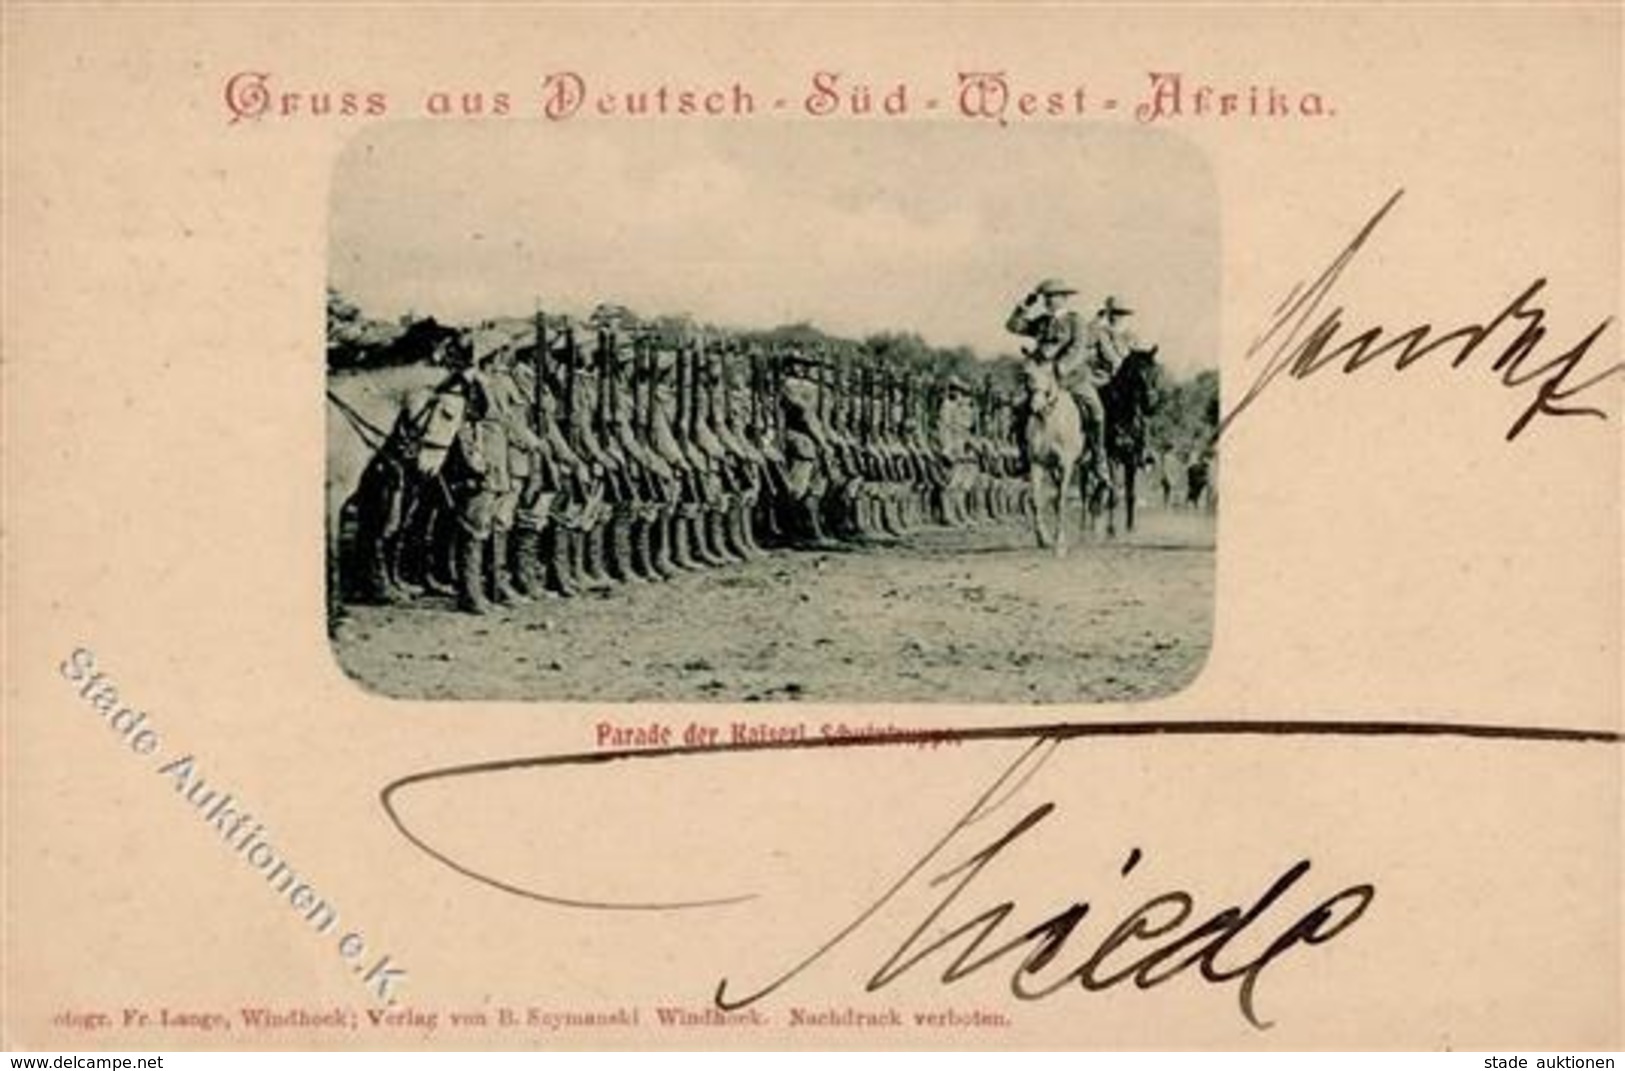 Gruss aus Deutsch-Süd-West-Afrika.
Parade der Kaiserl. Schutztruppe.
Thiede
Stade Auktionen e.K.
otogr. Fr. Lange, Windhoek; Verlag von B. Szymanski Windhoek. Nachdruck verboten.
www.delcampe.com
stade auktionen